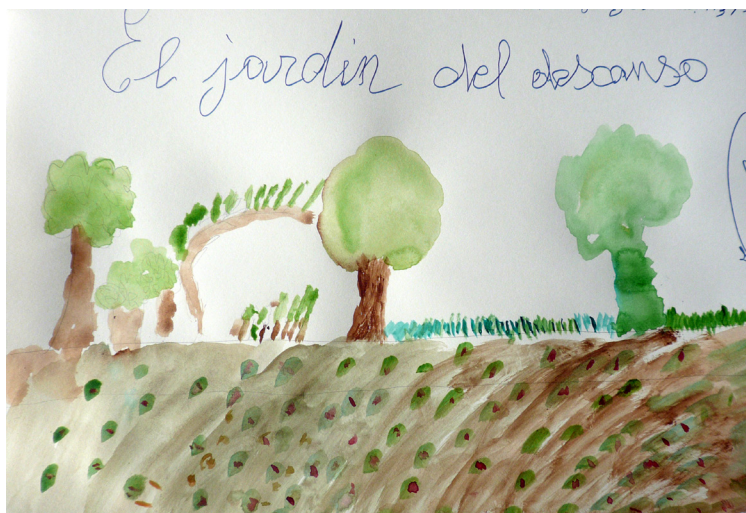 El jardin del descanso